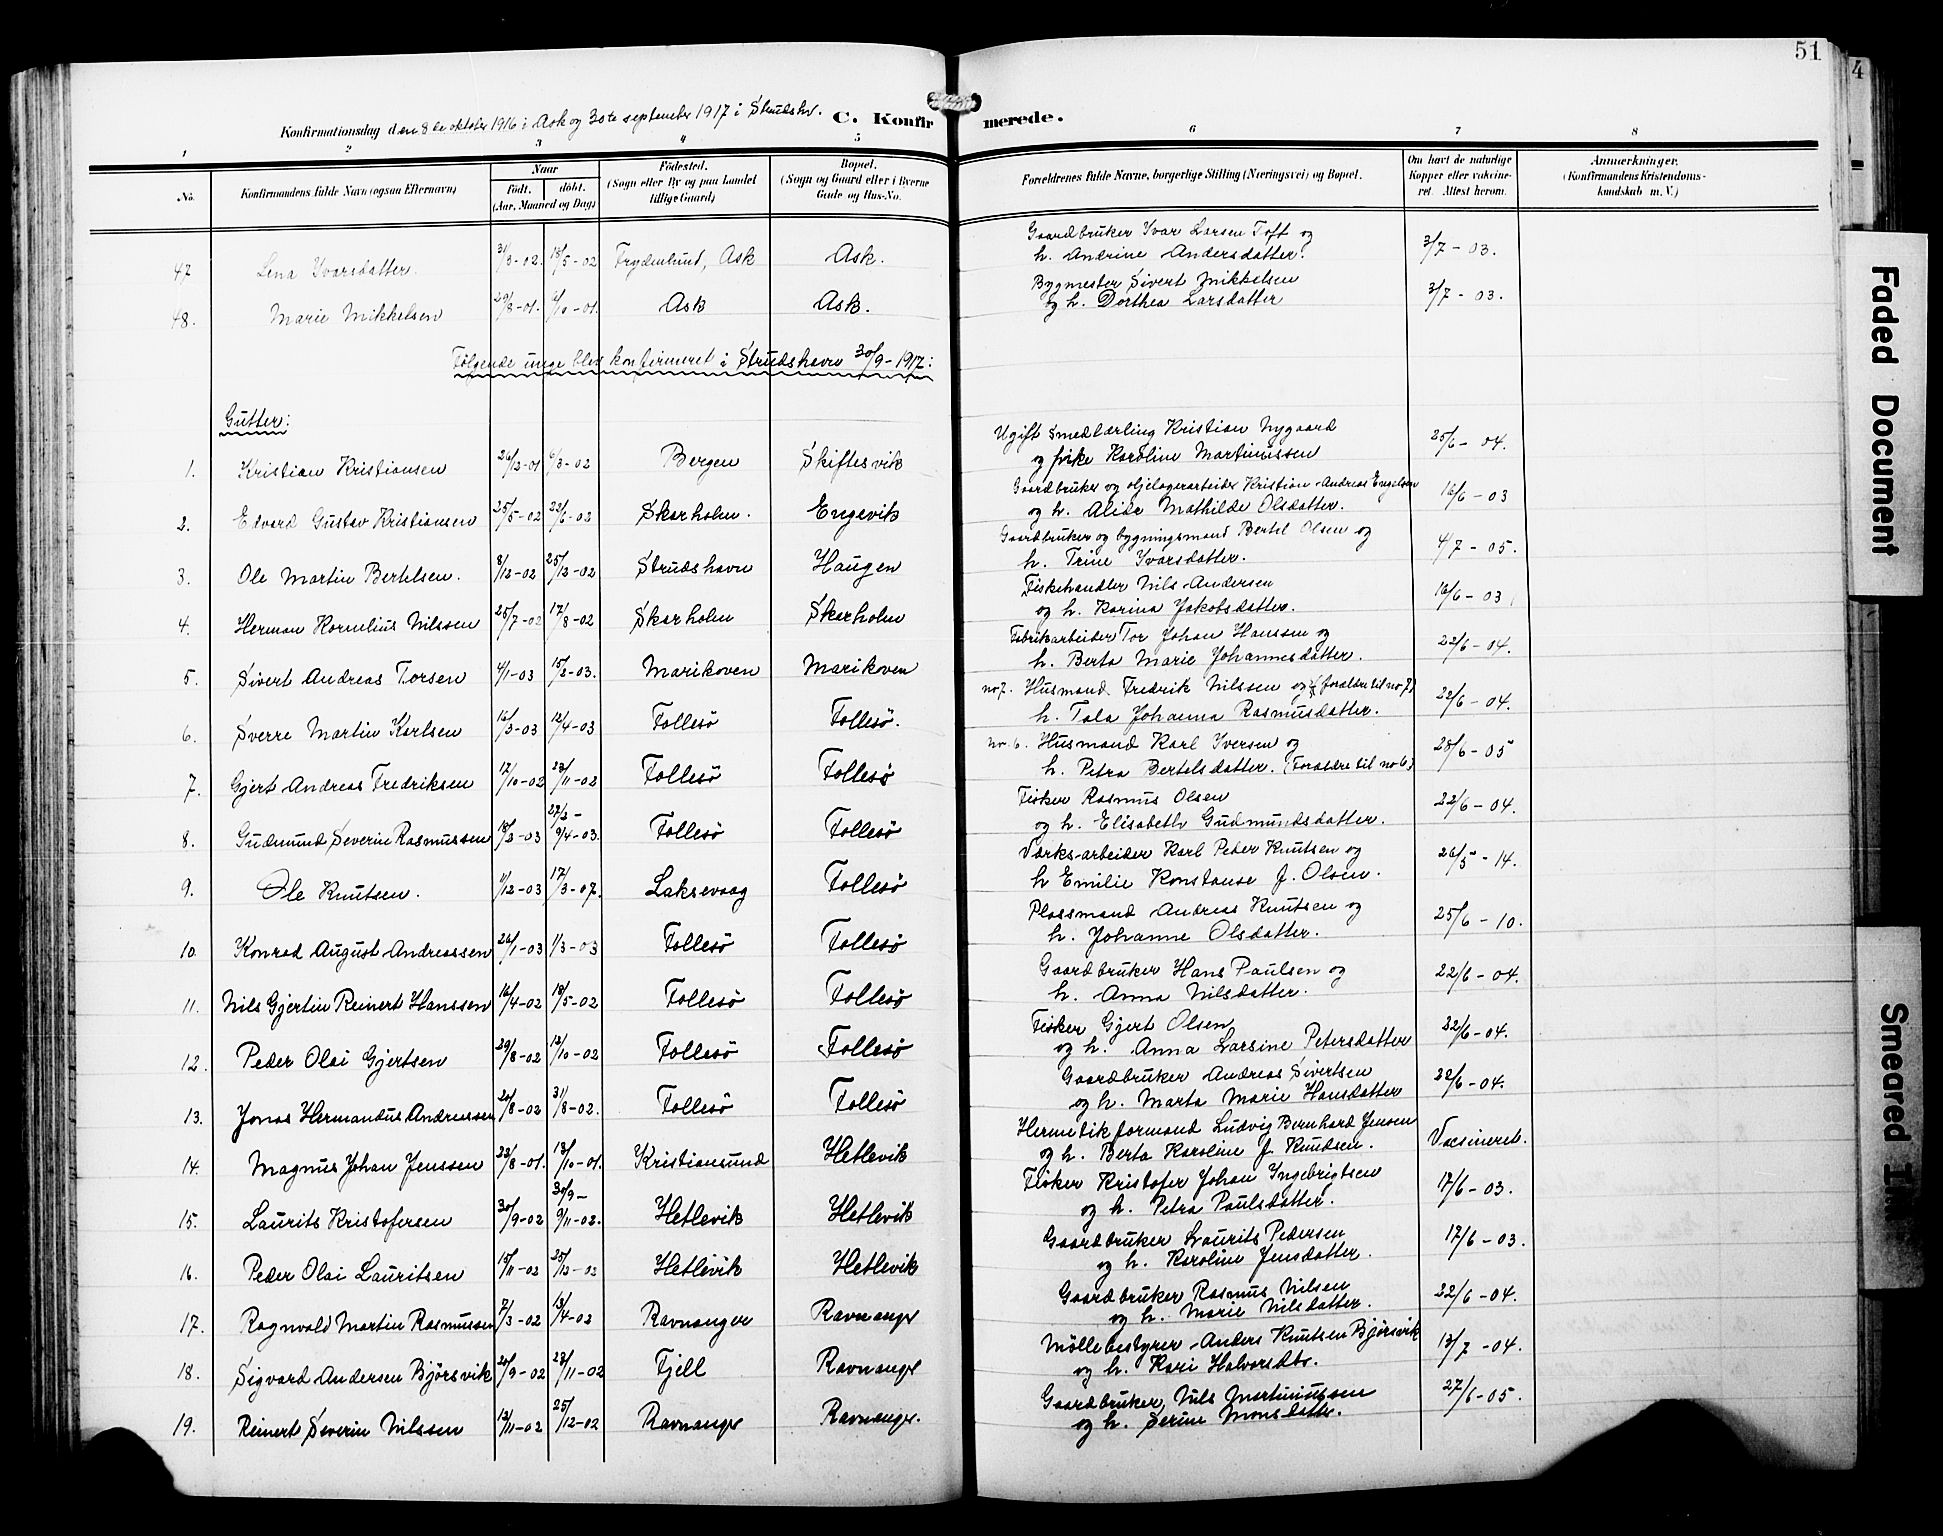 51
4
Konfirmationsdag den 8de oktober 1916 i Ask og 30te september 1917 i Strudshv. C. Konfirmerede.
1 2 3 4 5 6 7 8
No.
Konfirmandens fulde Navn (ogsaa Efternavn)
Naar
Født. døbt.
(Aar, Maaned og Dag)
Fødested.
(Sogn eller By og paa Landet
tillige Gaard)
Bopæl.
(Sogn og Gaard eller i Byerne
Gade og Hus-No.
Forældrenes fulde Navne, borgerlige Stilling (Næringsvei) og Bopæl.
Om havt de naturlige
Kopper eller vakcine-
ret. Attest herom.
Anmærkninger.
(Konfirmandens Kristendoms-
kundskab m. V.)
47 Lena Ivarsdatter. 31/3-02. 18/5-02 Frydenlund, Ask Ask. Gaardbruker Ivar Larsen Toft og 3/7 - 03.
h. Andrine Andersdatter.
48. Marie Mikkelsen 29/8-01. 6/10-01. Ask Ask. Bygmester Sivert Mikkelsen 3/7 - 03.
og h. Dorthea Larsdatter
Følgende unge blev konfirmeret i Strudshavn 30/9 - 1917:
Gutter:
1. Kristian Kristiansen 26/12-01 6/3-02 Bergen Skiftesvik Ugift smedlærling Kristian Nygaard 25/6 - 04.
og pike Karoline Martinussen
2. Edvard Gustav Kristiansen 25/5-02 22/6-02 Skarholm. Engevik Gaardbruker og oljelagerarbeider Kristian Andreas Engelsen 16/6 - 03
og h. Alida Mathilde Olsdatter.
3. Ole Martin Bertelsen. 8/12-02 25/12-02 Strudshavn Haugen Gaardbruker og bygningsmand Bertel Olsen og 4/7 - 05.
h. Trine Ivarsdatter.
4. Herman Kornelius Nilssen 25/7-02 17/8-02 Skarholm Skarholm Fiskehandler Nils Andersen 16/6 - 03
og h. Karina Jakobsdatter.
5. Sivert Andreas Torsen 4/1-03 15/2-03. Marikoven Marikoven Fabrikarbeider Tor Johan Hanssen og 22/6 - 04.
h. Berta Marie Johannesdatter.
6. Sverre Martin Karlsen 16/3-03 12/4-03 Follesö Follesö. no 7. Husmand Fredrik Nilssen og (forældre til no 7) 22/6 - 04.
h. Tala Johanna Rasmusdatter.
7. Gjert Andreas Fredriksen 17/10-02 23/11-02 Follesö Follesö no. 6. Husmand Karl Iversen og 28/6 - 05
h. Petra Bertelsdatter. (Forældre til no 6)
8. Gudmund Severin Rasmussen 18/2-03 27/2-9/4-03. Follesö Follesö Fisker Rasmus Olsen 22/6 - 04.
og h. Elisabeth Gudmundsdatter.
9. Ole Knutsen. 11/12-03 17/3-07. Laksevaag Follesö Værks-arbeider Karl Peder Knutsen og 26/5 - 14.
h Emilie Konstanse f. Olsen.
10. Konrad August Andreassen 26/1-03 1/3-03 Follesö Follesö Plassmand Andreas Knutsen og 25/6 - 10.
h. Johanne Olsdatter.
11. Nils Gjertin Reinert Hanssen 16/4-02 18/5-02 Follesö Follesö Gaardbruker Hans Paulsen og 22/6 - 04.
h. Anna Nilsdatter.
12. Peder Olai Gjertsen 29/8-02 12/10-02 Follesö Follesö Fisker Gjert Olsen 22/6-04.
og h. Anna Larsine Petersdatter
13. Jonas Hermandus Andreassen 20/8-02 31/8-02. Follesö Follesö Gaardbruker Andreas Sivertsen 22/6-04.
og h. Marta Marie Hansdatter
14. Magnus Johan Jenssen 22/8-01. 13/10-01. Kristiansund Hetlevik Hermetikformand Ludvig Bernhard Jensen Vacsineret.
og h. Berta Karoline f. Knudsen.
15. Laurits Kristofersen 30/9-02 30/9-9/11-02. Hetlevik Hetlevik Fisker Kristofer Johan Ingebrigtsen 17/6 - 03.
og h. Petra Paulsdatter.
16. Peder Olai Lauritsen 15/11-02 25/12-02 Hetlevik Hetlevik Gaardbruker Laurits Pedersen 17/6 - 03.
og h. Karoline Jensdatter.
17. Ragnvald Martin Rasmussen 7/3-02 13/4-02 Ravnanger Ravnanger Gaardbruker Rasmus Nilsen 22/6 - 04.
og h. Marie Nilsdatter.
18. Sigvard Andersen Bjørsvik 20/9-02 23/11-02 Fjell Ravnanger Møllebestyrer Anders Knutsen Bjørsvik 13/7 - 04.
og h. Kari Halvorsdtr.
19. Reinert Severin Nilssen 12/11-02 25/12-02 Ravnanger Ravnanger. Gaardbruker Nils Martinussen 27/6 - 05.
og h. Serine Monsdatter.
Faded Document
Smeared Ink